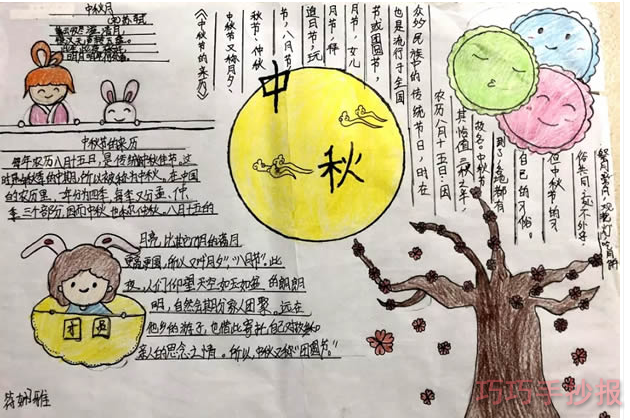 中秋月
中秋
《中秋节的来历》
中秋节又称月夕，
秋节，仲秋
节，八月节，
迫月节，玩
月节，拜
月节，女儿
节或团圆节，
也是流行于全国
众多民族中的传统节日，时在
农历八月十五日；因
其恰值三秋之半，
故名。中秋节
到了，各地都有
自己的习俗。
但中秋节的习
中秋节的来历
每年农历八月十五日，是传统的中秋佳节。这
时是秋季的中期，所以被称为中秋。在中国
的农历里，一年分为四季，每季又分孟、仲、
季三个部分，因而中秋也称仲秋。八月十五的
月亮比其他几个月的满月
更圆，所以又叫"月夕"，"八月节"。此
夜，人们仰望天空如玉如盘的朗朗
明，自然会期盼家人团聚。远在
他乡的游子，也借此寄托自己对故乡和
亲人的思念之情。所以，中秋又称"团圆节"。
团圆
巧巧手抄报